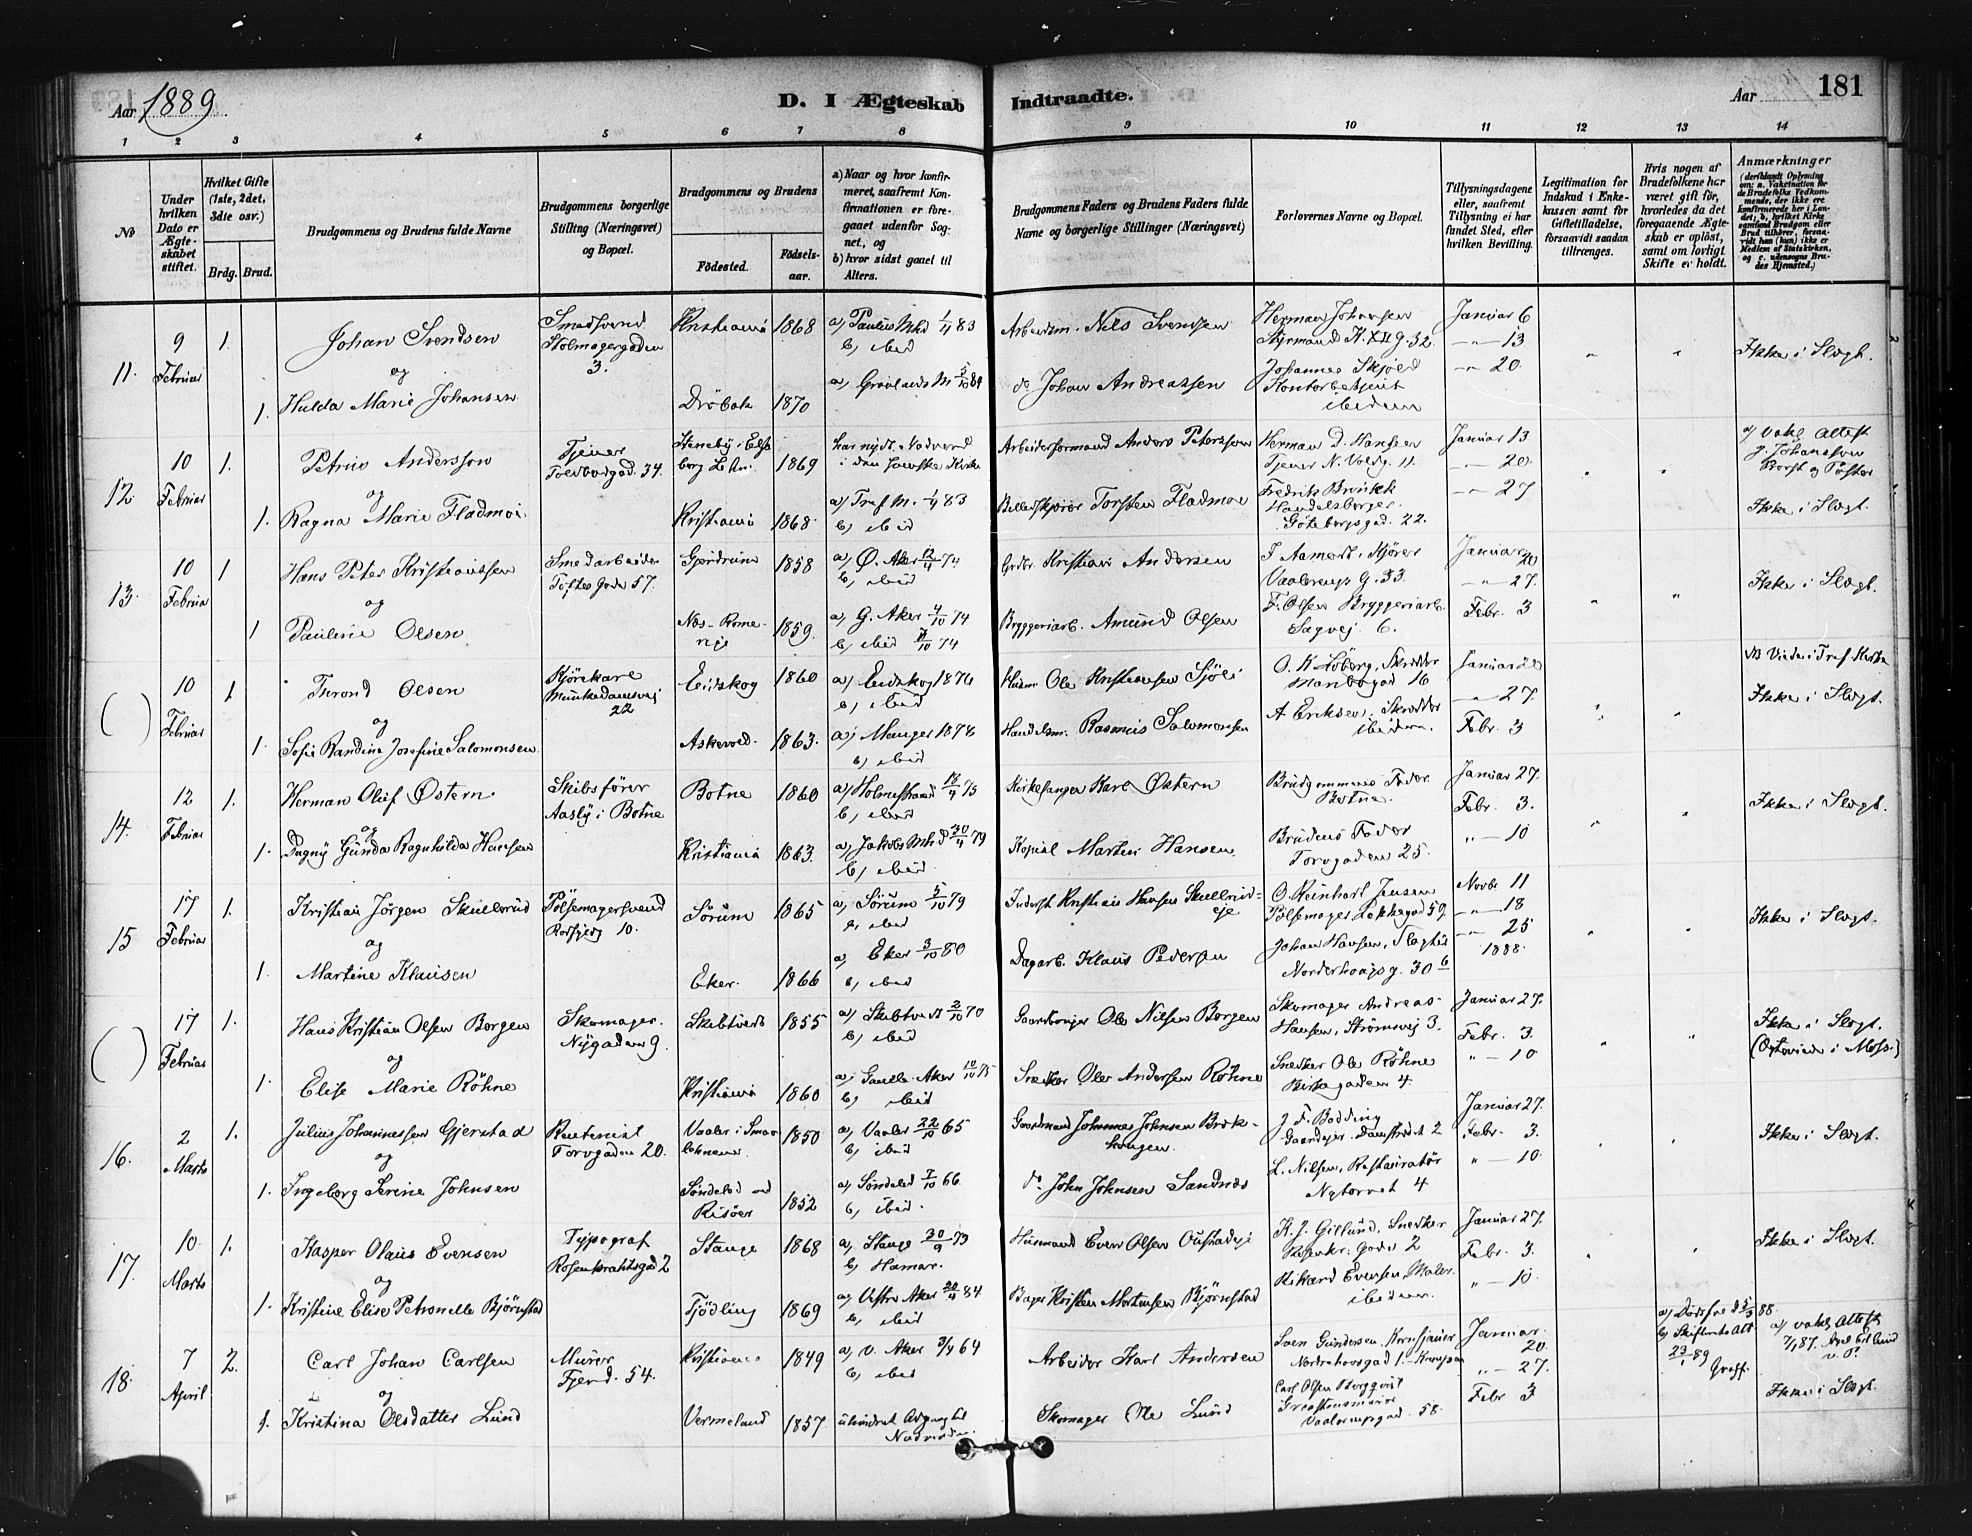 Aar 1889.
D. I Ægteskab Indtraadte.
Aar
181
1 2 3 4 5 6 7 8 9 10 11 12 13 14
No
Under hvilken Dato er Ægteskabet stiftet.
Hvilket Gifte (1ste, 2det, 3die osv.)
Brdg. Brud.
Brudgommens og Brudens fulde Navne
Brudgommens borgerlige Stilling (Næringsvei) og Bopæl.
Brudgommens og Brudens
Födested.
Födselsaar.
a) Naar og hvor konfirmeret, saafremt Konfirmationen er foregaaet udenfor Sognet, og
b) hvor sidst gaaet til Alters.
Brudgommens Faders og Brudens Faders fulde Navne og borgerlige Stillinger (Næringsvei)
Forlovernes Navne og Bopæl.
Tillysningsdagene eller, saafremt Tillysning ei har fundet Sted, efter hvilken Bevilling.
Legitimation for Indskud i Enkekassen samt for Giftetilladelse, forsaavidt saadan tiltrænges.
Hvis nogen af Brudefolkene har været gift før, hvorledes da det foregaaende Ægteskab er oplöst, samt om lovligt Skifte er holdt.
Anmærkninger
11. 9 Februar 1. Johan Svendsen Smedsvend Stolmagergaden 3. Kristiania 1868 a) Paulus Mhd 1/4 83 b) ibid Arbeidsm. Nils Svendsen Herman Johansen Styrmand K. XII G. 32. Januar 6 " 13 " 20 Ikke i Slægt.
og
1. Hulda Marie Johansen Dröbak 1870 a) Grønlands M 5/10 84 do Johan Andreassen Johannes Skjold Kontorbetjent ibidem
12. 10 Februar 1. Petrus Andersson Tjener Toldbodgad. 34. 1869 har nydt Nadverd i den svenske Kirke Arbeidsformand Anders Peterson Herman D. Hansen Tjener N. Voldg. 11. Januar 13 " 20 " 27 a) Vakc. Attest J. Johansson
og
1. Ragna Marie Fladmoe Kristiania 1868. a) Tref M. 1/4 83 b) ibid Torsten Fladmoe Fredrik Handelsborger Göteborgsgad. 22. Ikke i Slægt.
13. 10 Februar 1 Hans Peter Kristiansen Smedarbeider Toftes Gade 57. Gjerdrum 1858 a) Ø. Aker 12/4 74 b) ibid Grdbr. Kristian Andersen Kjører Vaalerengs G. 33. Januar 20 " 27. Febr. 3 Ikke i Slægt.
og
1 Pauline Olsen Nes Romerije 1859. a) G. Aker 4/10 74 b) ibid 11/10 74 Bryggeriarb. Amund Olsen F. Olsen Bryggeriarb. Sagvej. 6.
( ) 10 Februar 1 Trond Olsen Kjörekarl Munkedamsvej 22 Eidskog 1860 a) Eidskog 1874 b) ibid Husm. Ole Kristiansen Sjöli O. K. Löberg, Skredder Januar 20 " 27. Febr. 3 NB Viede i Tref. Kirke Ikke i Slægt.
og
1. Sofie Randine Josefine Salomonsen Askevold. 1863. a) Manger 1878 b) ibid Handelsm. Rasmus Salomonsen A. Eriksen, Skredder ibidem.
14. 12 Februar 1. Herman Oluf Østern Skibsförer Aasly i Botne Botne 1860 a) Holmestrand 18/4 75 b) ibid Kirkesanger Karl Østern Brudgommens Fader Botne. Januar 27. Febr. 3. " 10 Ikke i Slægt.
og
1. Dagny Gunda Ragnhilda Hansen Kristiania 1863. a) Jakobs Mhd 30/4 79 b) ibid. Kopist Martin Hansen. Brudens Fader Torvgaden 25.
15 17 Februar 1. Kristian Jörgen Skullerud Pölsemagersvend 10. Sörum 1865 a) Sörum 5/10 79 b) ibid Inderst Kristian Hansen Skullerudeje O. Reinhart Jensen Pölsemager, Lakkegad 59. Novbr 11 " 18 " 25 1888. Ikke i Slægt.
og
1. Martine Klausen Eker. 1866 a) Eker 3/10 80 b) ibid Dagarb. Klaus Pedersen Johan Hansen, Slagter Norderhovsg. 30 6
( ) 17 Februar 1. Hans Kristian Olsen Borgen Skomager. Nygaden 9. Skibtvedt 1855 a) Skibtvedt 2/10 70 b) ibid Gaardbruger Ole Nilsen Borgen Skomager Andreas Hansen, Strömsvej 3. Januar 27. Febr. 3. " 10 Ikke i Slægt. (Ogsaa viede i Moss.)
og
1. Elise Marie Röhne Kristiania 1860 a) Gamle Aker 10/10 75 b) ibid Snedker Ole Andersen Röhne Snedker Ole Röhne Kirkegaden 4
16. 2 Marts 1. Julius Johannessen Gjerstad Torvgaden 20. Vaaler i Smaalehnene 1850 a) Vaaler 22/10 65 b) ibid Gaardmand Johannes Johnsen J. F. Bodding Gaardejer. Damstrædet 2 Januar 27. Febr. 3. " 10. Ikke i Slægt.
og
1. Ingeborg Serine Johnsen Söndeled ved Risöer 1852 a) Söndeled 7/10 66 b) ibid. do John Johnsen Sandnes L. Nilsen, Restauratör Nytorvet 4
17. 10 Marts 1. Kasper Olaus Evensen Typograf Rosenkrantzgad 2 Stange 1868 a) Stange 30/9 83 b) Hamar. Husmand Even Olsen K. J. Gillund. Snedker Rosenkr. Gade 2 Januar 27. Febr. 3. " 10 Ikke i Slægt.
og
1. Kristine Elise Petronelle Bjørnstad Tjödling 1869 a) Vestre Aker 20/4 84 b) ibid Bager Kristen Mortensen Bjørnstad Rikard Evensen, Maler. ibidem.
18. 7 April 2. Carl Johan Carlsen Murer Fjerd. 54. Kristiania 1849 a) V. Aker 3/4 64 b) ibid Arbeider Karl Andersen Sven Gundersen Januar. 20. " 27. Febr 3 a) Dödsfald 5/3 88. b) Skifteretsatt 23/1 89 a) Vakc. Attest 7/1 87.
og
1. Kristina Olsdatter Lund Vermeland 1857. uhindret Adgang til Nadverden Skomager Ole Lund Carl Olsen Bergqvist Vaalerengsgad. 58. Ikke i Slægt.